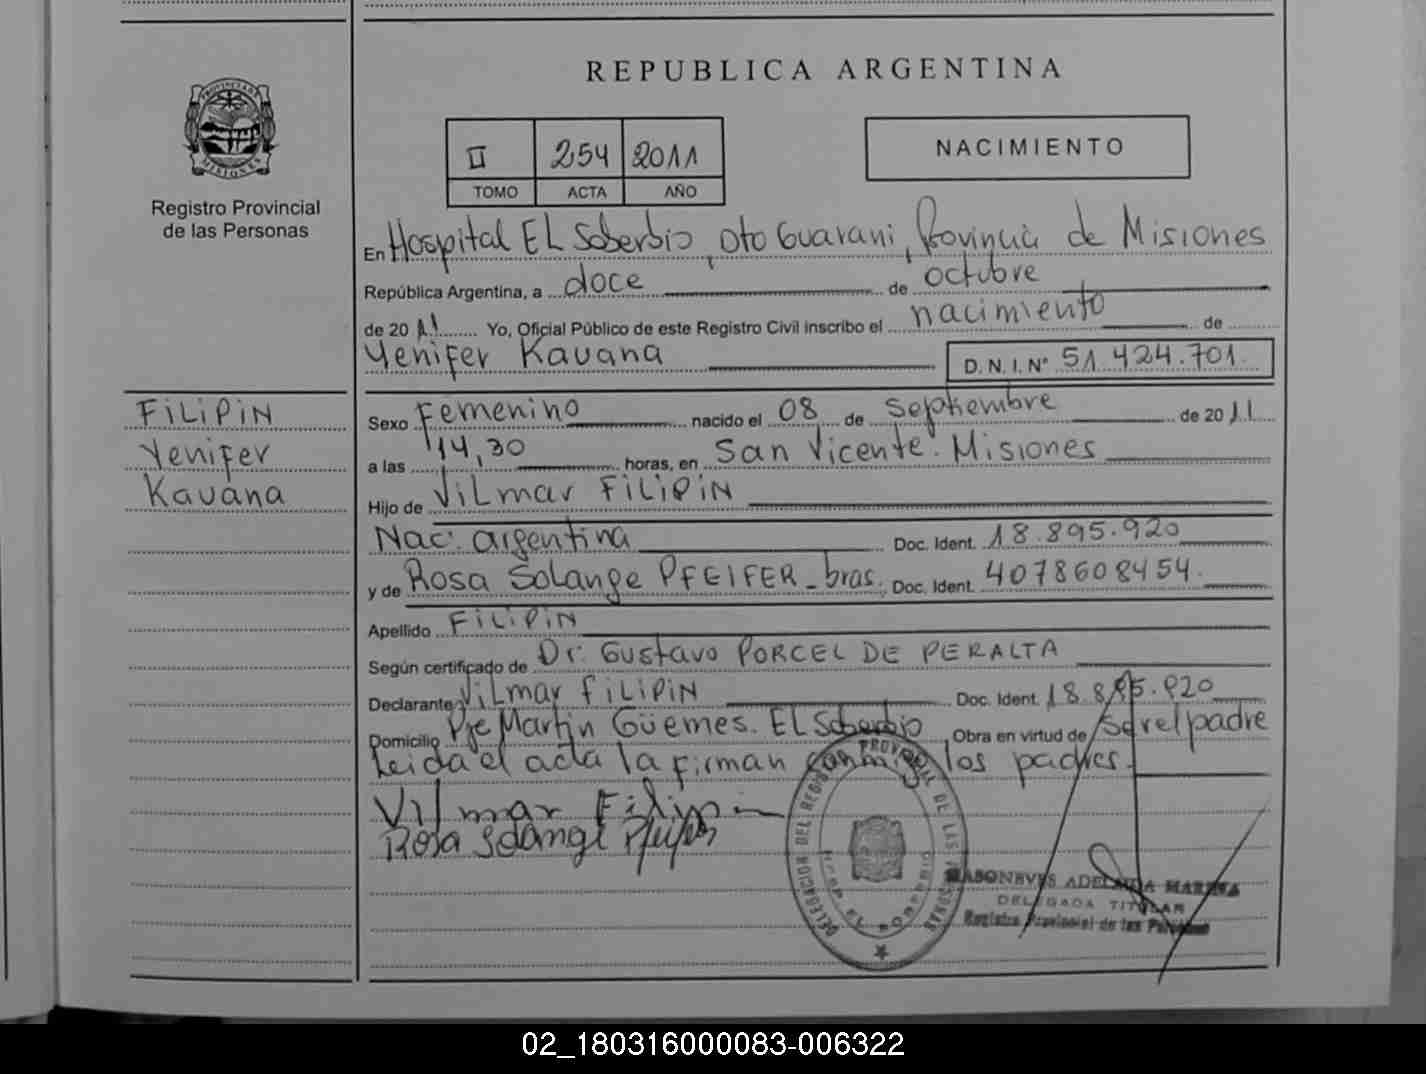 REPUBLICA ARGENTINA
PROVINCIA DE MISIONES
Registro Provincial
de las Personas
II 254 2011
TOMO ACTA AÑO
NACIMIENTO
En Hospital EL Soberbio, Dto Guarani, Provincia de Misiones
República Argentina, a doce de octubre
de 2011 Yo, Oficial Público de este Registro Civil inscribo el nacimiento de
Yenifer Kauana D.N.I. Nº 51.424.701
FiLiPiN
Yenifer
Kauana
Sexo Femenino nacido el 08 de Septiembre de 2011
a las 14,30 horas, en San Vicente. Misiones
Hijo de ViLmar FiLiPiN
Nac. argentina Doc. Ident. 18.895.920
y de Rosa Solange PFEIFER - bras. Doc. Ident. 4078608454
Apellido FiLiPiN
Según certificado de Dr. Gustavo PORCEL DE PERALTA
Declarante ViLmar FiLiPiN Doc. Ident. 18.895.920
Domicilio Pje Martin Güemes. EL Soberbio Obra en virtud de ser el padre
Leida el acta la firman conmigo los padres.
Vilmar Filipin
Rosa Solange Pfeifer
DELEGACION DEL REGISTRO PROVINCIAL DE LAS PERSONAS
EL SOBERBIO
ADELAIDA MARINA
DELEGADA TITULAR
Registro Provincial de las Personas
02_180316000083-006322